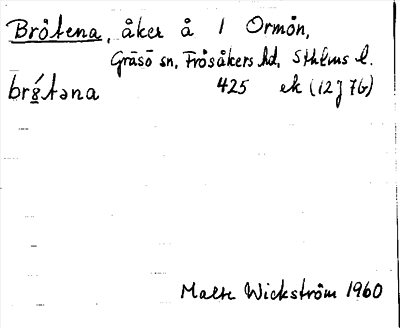 Bråtena, åker å 1 Ormön,
Gräsö sn, Frösåkers hd, Sthlms l.
brǻtəna 425 ek (12J7b)
Malte Wickström 1960